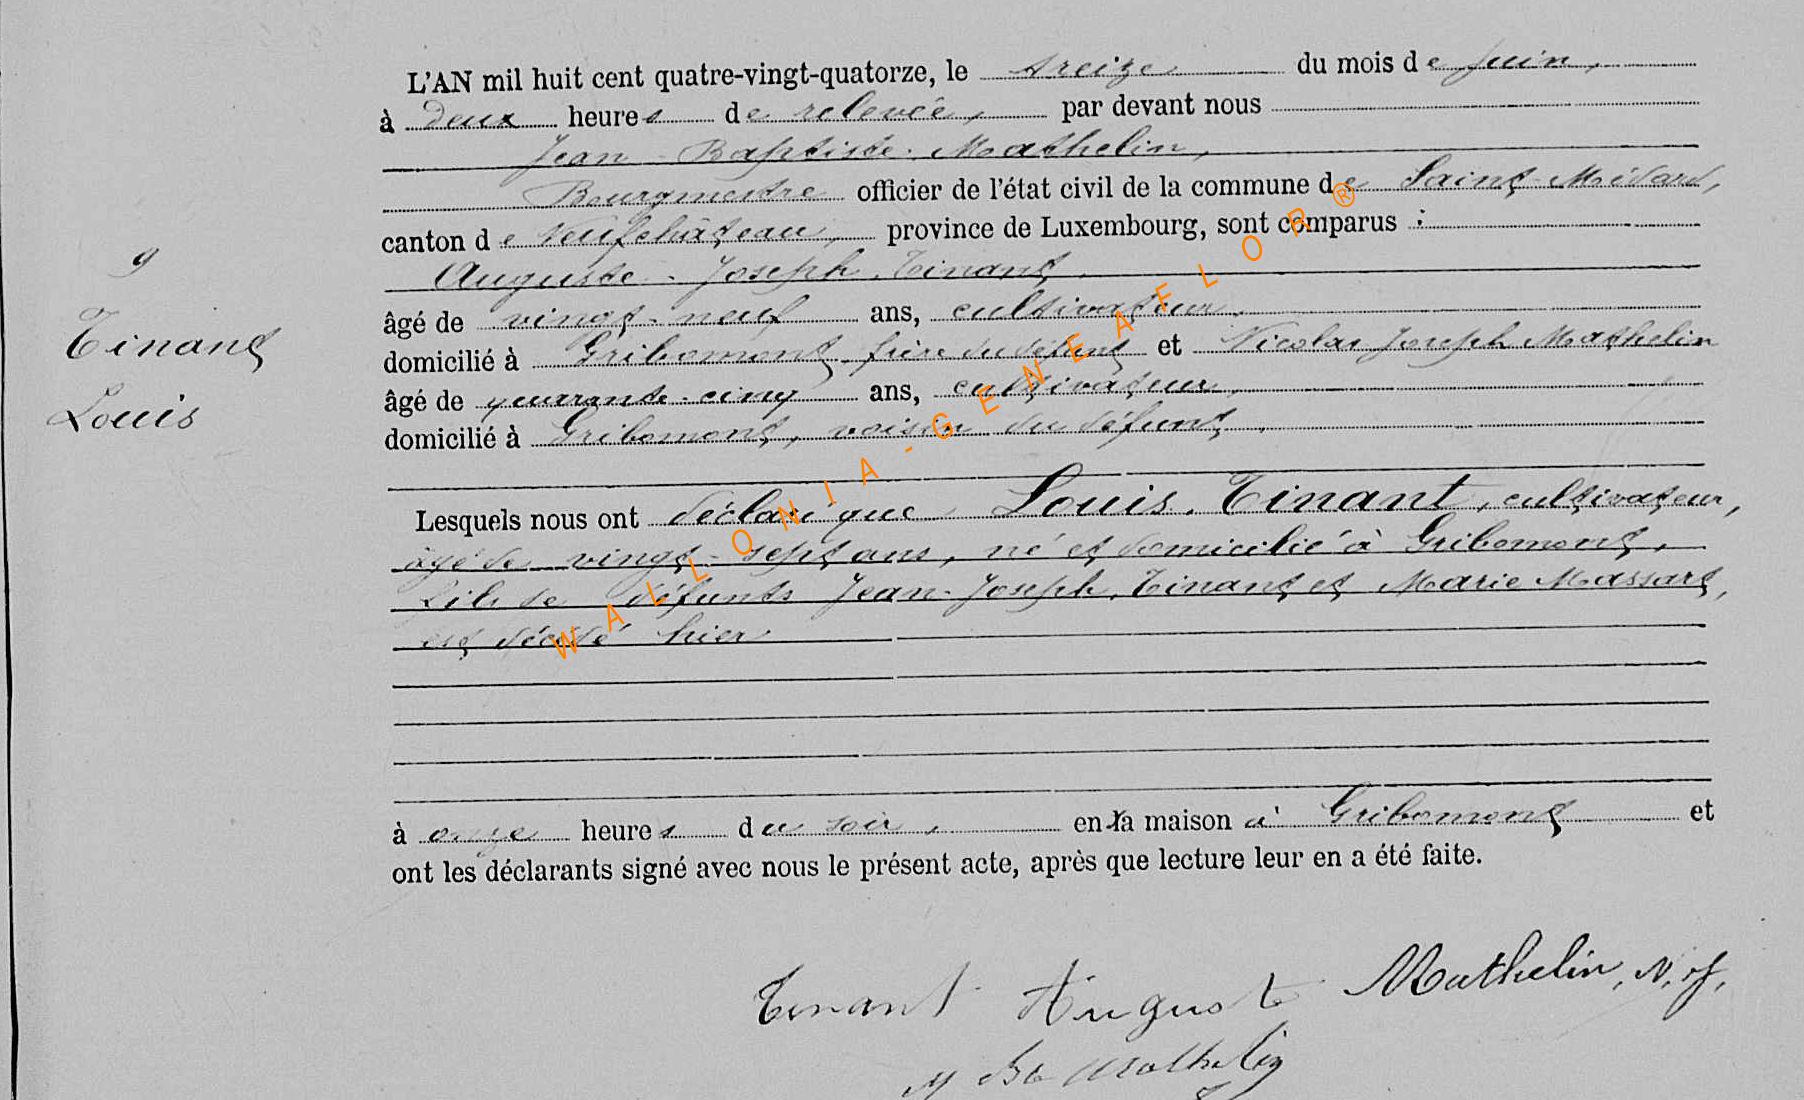 L'AN mil huit cent quatre-vingt-quatorze, le treize du mois de Juin,
à deux heures de relevée, par devant nous
Jean-Baptiste Mathelin,
Bourgmestre officier de l'état civil de la commune de Saint-Médard,
canton de Neufchâteau, province de Luxembourg, sont comparus :
Auguste-Joseph Tinant,
âgé de vingt-neuf ans, cultivateur,
domicilié à Gribomont, frère du défunt et Nicolas Joseph Mathelin
âgé de quarante-cinq ans, cultivateur,
domicilié à Gribomont, voisin du défunt.
9
Tinant
Louis
Lesquels nous ont déclaré que Louis Tinant, cultivateur,
âgé de vingt-sept ans, né et domicilié à Gribomont,
fils de défunts Jean-Joseph Tinant et Marie Massart,
est décédé hier
à onze heures du soir, en la maison à Gribomont et
ont les déclarants signé avec nous le présent acte, après que lecture leur en a été faite.
Tinant August Mathelin, N. J.
J Bte Mathelin
WALLONIA-GENEAFLOR®